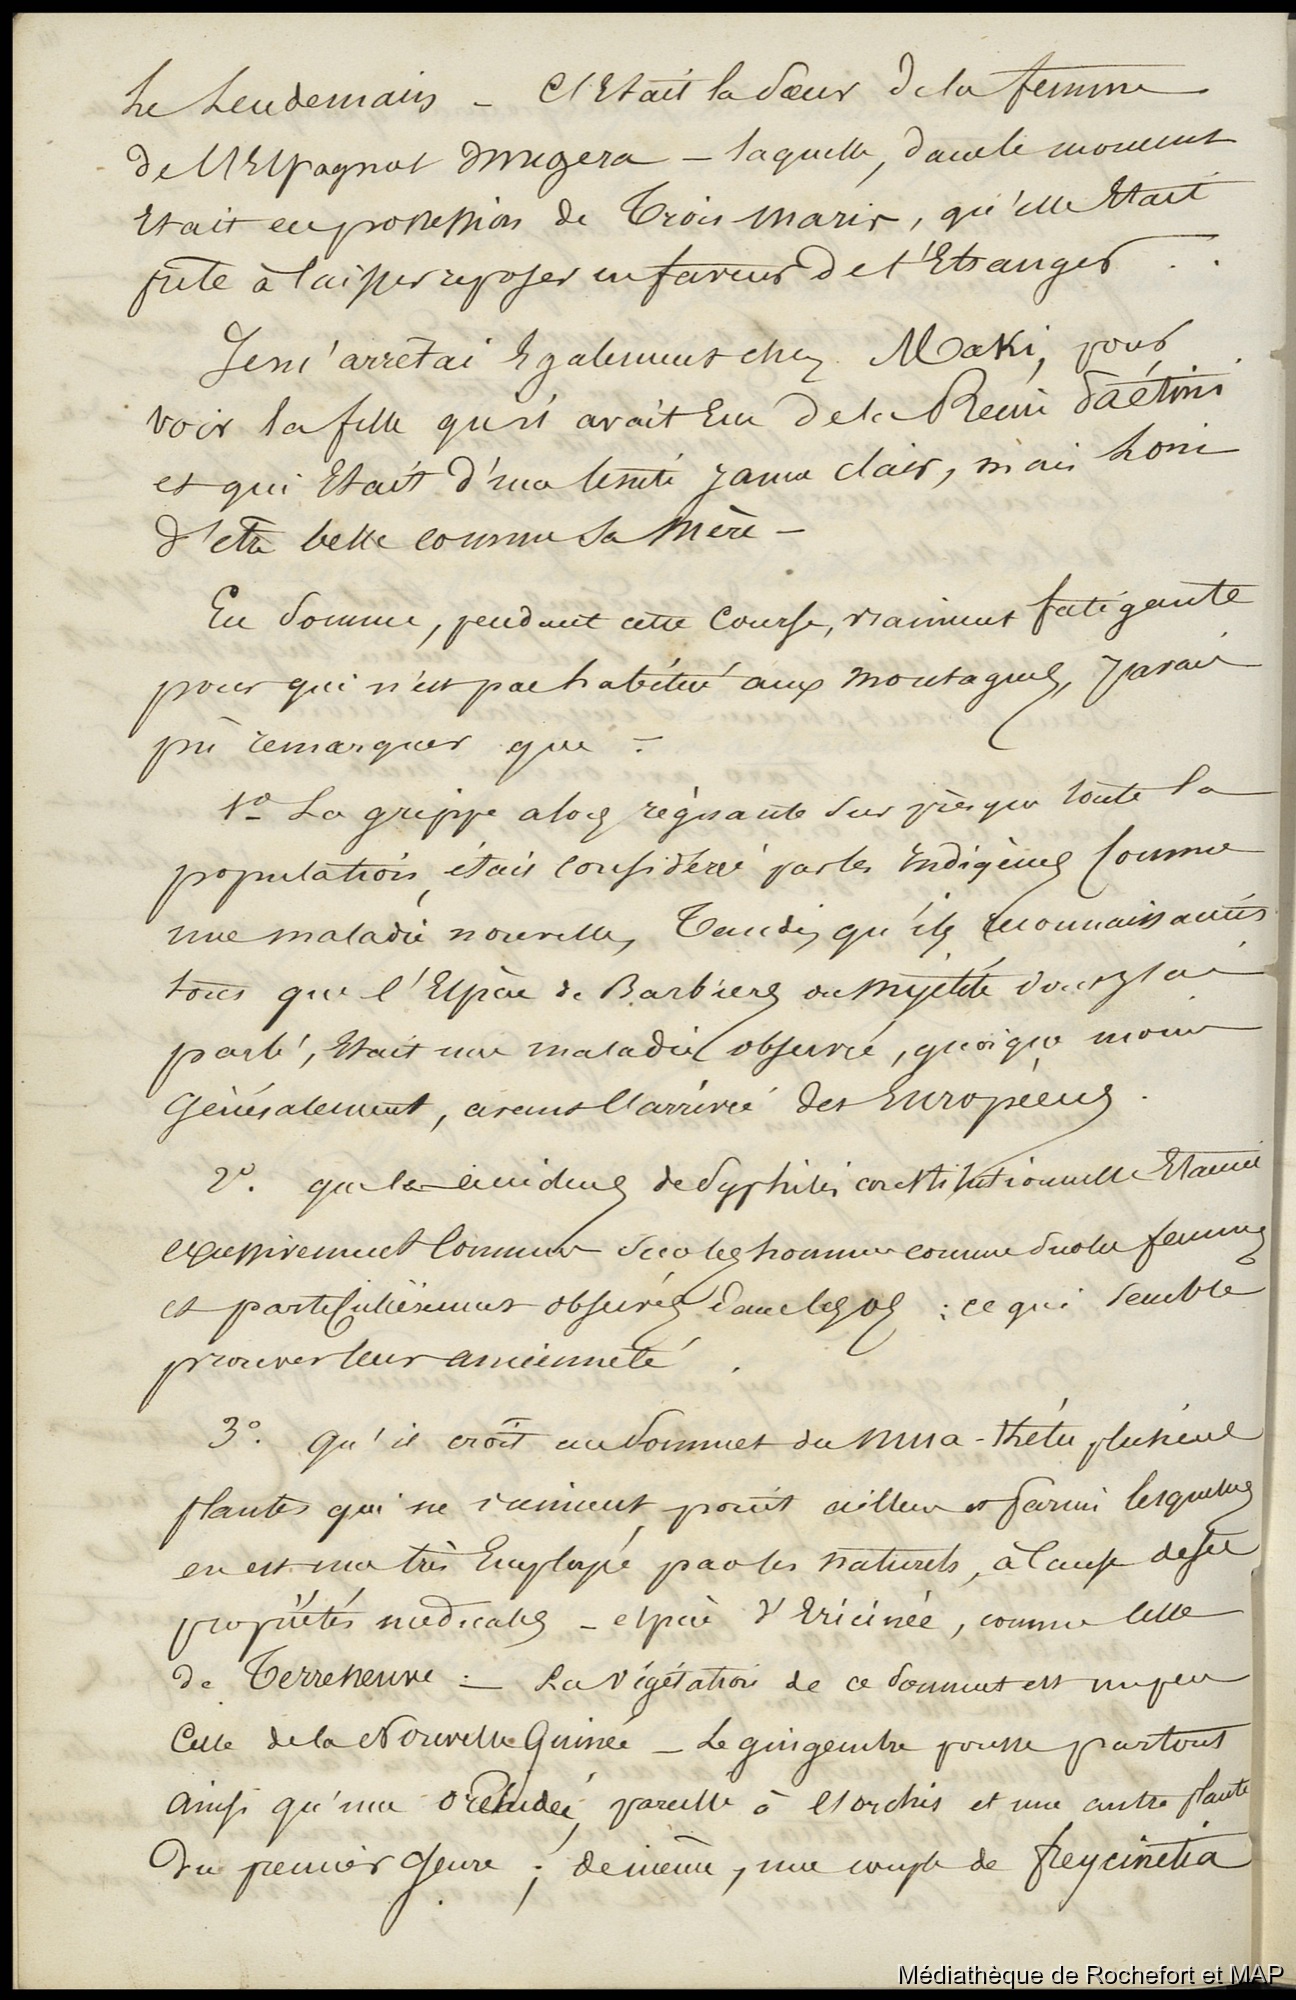 Le Lendemain – C'Etait la Sœur de la femme
de l'Espagnol – laquelle, dans le moment
Etait en possession de Trois maris, qu'elle Etait
prête à laisser reposer en faveur de l'Etranger . .
Je m'arrêtai Egalement chez Maki, pour
voir la fille qu'il avait Eue de la Reine Paétini
et qui Etait d'une teinte jaune clair, mais loin
d'être belle comme sa Mère –
En Somme, pendant cette Course, vraiment fatigante
pour qui n'est pas habitué aux montagnes, j'avais
pû remarquer que –
1º La grippe alors régnante sur presque toute la
population, était considérée par les Indigènes Comme
une maladie nouvelle, Tandis qu'ils reconnaissaient
tous que l'Espèce de Barbiers ou Myélite dont j'ai
parlé, Etait une maladie observée, quoique moins
Généralement, avant l'arrivée des Européens .
2º. que les accidens de Syphilis constitutionnelle Etaient
excessivement Communs sur les hommes comme sur les femmes
et particulièrement observés dans les os : ce qui Semble
prouver leur ancienneté .
3º. Qu'il croît au Sommet du Mua-théfu plusieurs
plantes qui ne viennent point ailleurs et parmi lesquelles
en est une très Employée par les naturels, à Cause de ses
propriétés médicales – espèce d'Ericinée, comme celle
de Terreneuve : – La Végétation de ce Sommet est un peu
Celle de la Nouvelle Guinée – Le gingembre pousse partout
ainsi qu'une orchidée, pareille à l'orchis et une autre plante
du premier Genre ; de même, une couple de freycinetia
Médiathèque de Rochefort et MAP